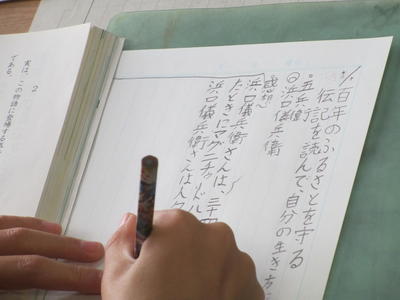 百年のふるさとを守る
伝記を読んで、自分の生き方
・五兵衛
浜口儀兵衛
感想
浜口儀兵衛さんは、三十
たときにマグニチュード
浜口儀兵衛さんは人
2
実は、この物語に登場する
である。